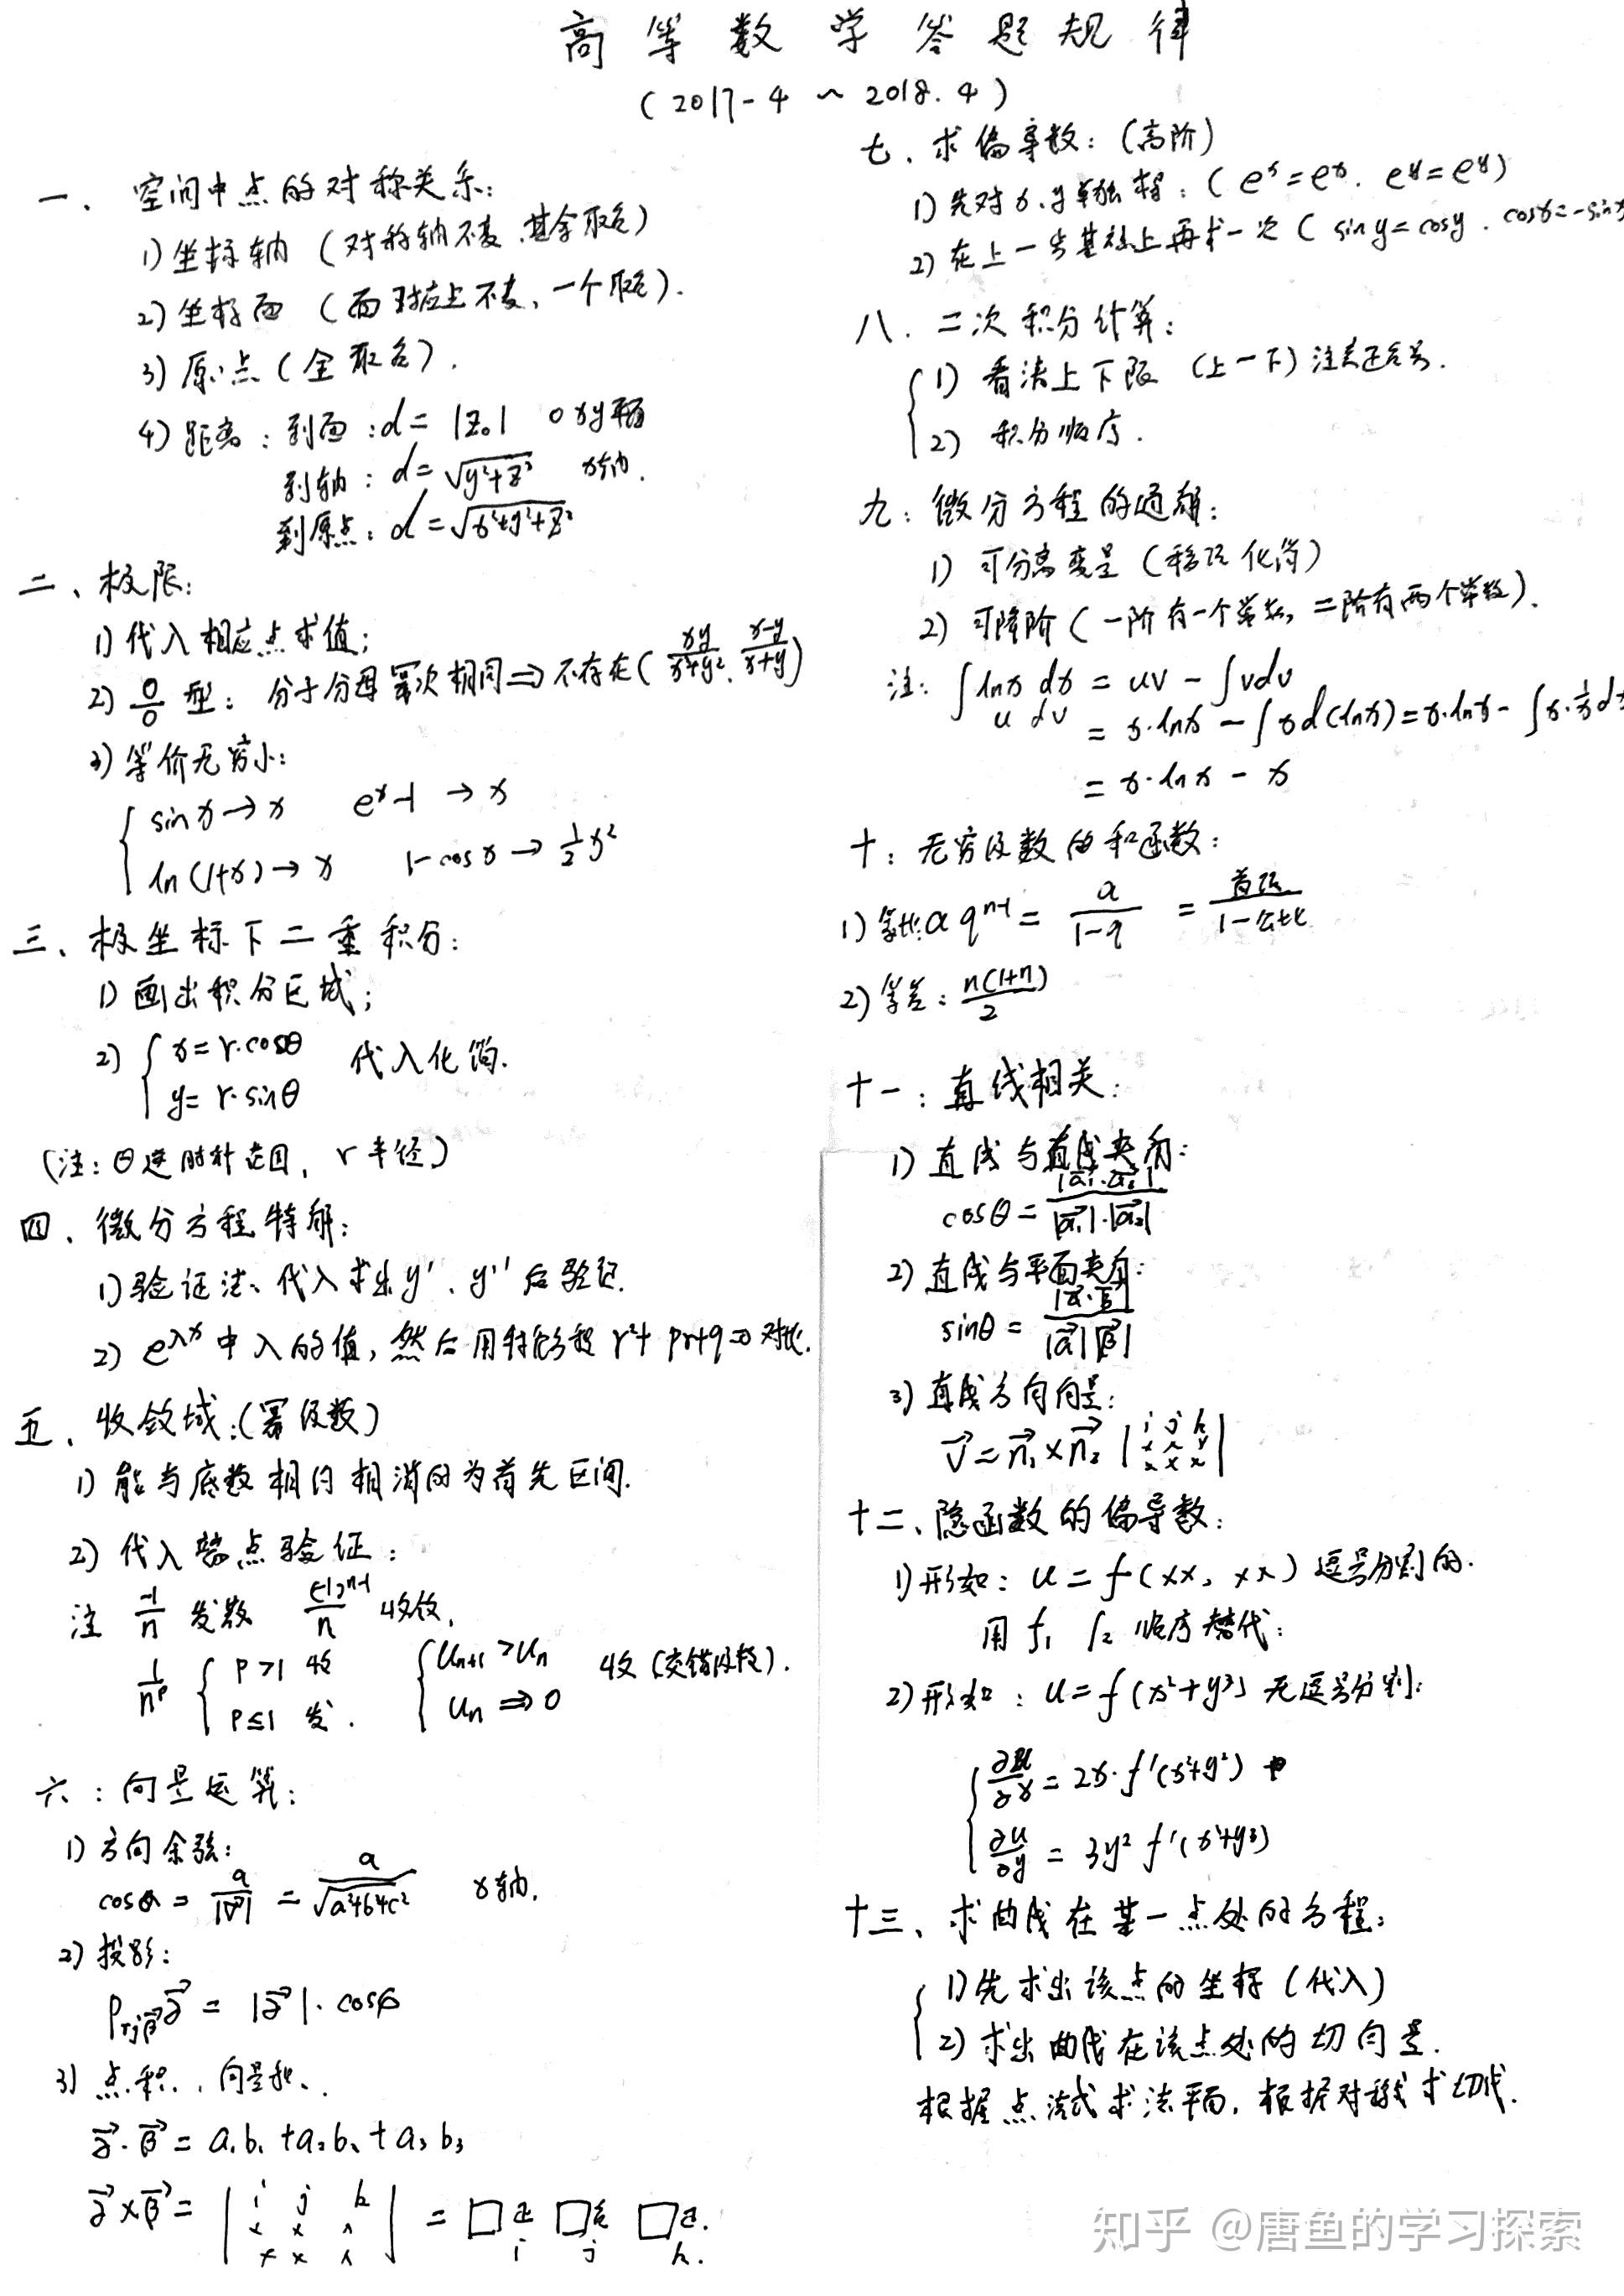 高等数学答题规律
(2017-4 ~ 2018.4)
一、空间中点的对称关系:
1) 坐标轴 (对称轴不变,其余取负)
2) 坐标面 (面对应上不变,一个取负).
3) 原点 (全取负).
4) 距离: 到面: d = |z₀| oxy平面
到轴: d = √(y²+z²) x轴.
到原点: d = √(x²+y²+z²)
二、极限:
1) 代入相应点求值;
2) 0/0 型: 分子分母幂次相同 ⇒ 不存在 ( xy/(x²+y²), (x-y)/(x+y) )
3) 等价无穷小:
sinx → x  eˣ-1 → x
ln(1+x) → x  1-cosx → ½x²
三、极坐标下二重积分:
1) 画出积分区域;
2) { x = r·cosθ
y = r·sinθ 代入化简.
(注: θ逆时针范围, r半径)
四、微分方程特解:
1) 验证法、代入求出 y'、y'' 后验证.
2) e^λx 中λ的值, 然后用特征方程 r²+pr+q=0 对比.
五、收敛域: (幂级数)
1) 能与底数相约相消的为首先区间.
2) 代入端点验证:
注 -1/n 发散  (-1)ⁿ⁻¹/n 收敛.
1/nᵖ { p>1 收
p≤1 发.
{ Uₙ₊₁ > Uₙ
Uₙ ⇒ 0 收 (交错级数).
六: 向量运算:
1) 方向余弦:
cosα = a/|v⃗| = a/√(a²+b²+c²)  x轴.
2) 投影:
Prjβ⃗ α⃗ = |α⃗|·cosβ
3) 点积、向量积、
α⃗·β⃗ = a₁b₁+a₂b₂+a₃b₃
α⃗×β⃗ = | i j k
x x x
x x x | = □i □j □k.
七、求偏导数: (高阶)
1) 先对x、y单独求导: (eˣ=eˣ. eʸ=eʸ)
2) 在上一步基础上再求一次 ( sin y = cos y. cosx = -sinx
八. 二次积分计算:
1) 看清上下限 (上-下) 注意正负号.
2) 积分顺序.
九: 微分方程的通解:
1) 可分离变量 (移项化简)
2) 可降阶 (一阶有一个常数, 二阶有两个常数).
注: ∫lnx dx = uv - ∫vdu
u dv
= x·lnx - ∫x d(lnx) = x·lnx - ∫x·1/x dx
= x·lnx - x
十: 无穷级数的和函数:
1) 等比: a qⁿ⁻¹ = a/(1-q) = 首项/(1-公比)
2) 等差: n(1+n)/2
十一: 直线相关:
1) 直线与直线夹角:
cosθ = |a⃗₁·a⃗₂|/(|a⃗₁|·|a⃗₂|)
2) 直线与平面夹角:
sinθ = |α⃗·β⃗|/(|α⃗||β⃗|)
3) 直线方向向量:
v⃗ = n⃗₁×n⃗₂ | i j k
x x x
x x x |
十二、隐函数的偏导数:
1) 形如: u = f(xx, xx) 逗号分割的.
用 f₁ f₂ 顺序替代:
2) 形如: u = f(x²+y³) 无逗号分割:
∂u/∂x = 2x·f'(x²+y²)
∂u/∂y = 3y² f'(x²+y³)
十三、求曲线在某一点处的方程:
1) 先求出该点的坐标 (代入)
2) 求出曲线在该点处的切向量.
根据点法式求法平面, 根据对称式求切线.
知乎 @唐鱼的学习探索